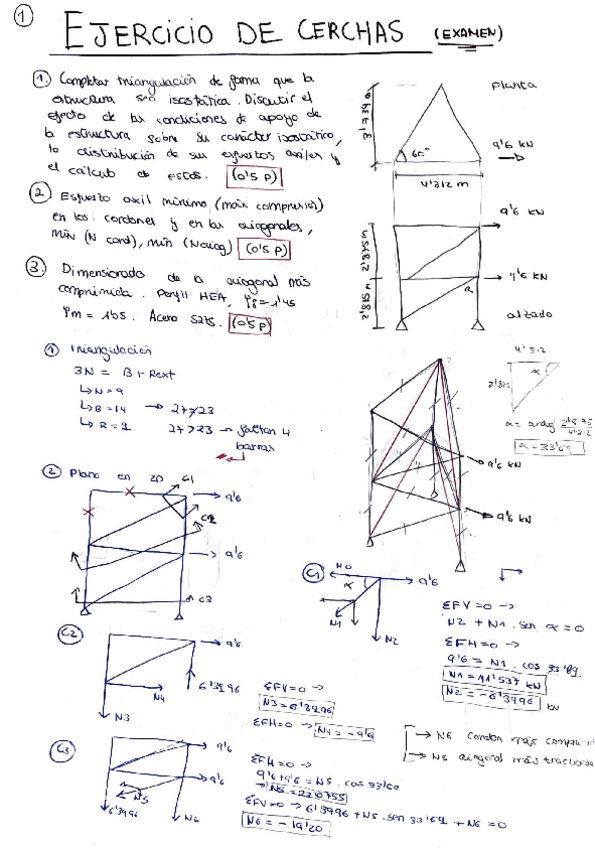 1
EJERCICIO DE CERCHAS (EXAMEN)
1. Completar triangulación de forma que la
estructura sea isostática. Discutir el
efecto de las condiciones de apoyo de
la estructura sobre su carácter isostático,
la distribución de sus esfuerzos axiles y
el cálculo de estos. (0'5 P)
2 Esfuerzo axil mínimo (máx compresión)
en los cordones y en las diagonales,
mín (N cord), mín (Ndiag) (0'5 P)
3. Dimensionado de la diagonal más
comprimida. Perfil HEA,
γm = 1'05. Acero S275. (0'5 P)
planta
60°
9'6 kN
4'312 m
9'6 kN
9'6 kN
α
alzado
1 Triangulación
3N = B + Rext
↳ N = 9
↳ B = 14 → 27≠23
↳ R = 9 27 > 23 → faltan 4
barras
4'312
α
2'875
α = arctg 2'875/4'312
α = 33'69
9'6 kN
9'6 kN
2 Plano en 2D
C1
9'6
C2
9'6
C3
C1
N0
9'6
α
N1
N2
ΣFV=0 →
N2 + N1 · sen α = 0
ΣFH=0 →
9'6 = N1 · cos 33'69
N1 = 11'537 kN
N2 = -6'3996 kN
C2
9'6
6'3996
N4
N3
ΣFV=0 →
N3 = 6'3996
ΣFH=0 → N4 = -9'6
→ N6 cordón más comprimido
→ N5 diagonal más traccionada
C3
9'6
9'6
N5
6'3996
N6
ΣFH=0 →
9'6+9'6 = N5 · cos 33'69
→ N5 = 23'0755
ΣFV=0 → 6'3996 + N5 · sen 33'69 + N6 = 0
N6 = -19'20